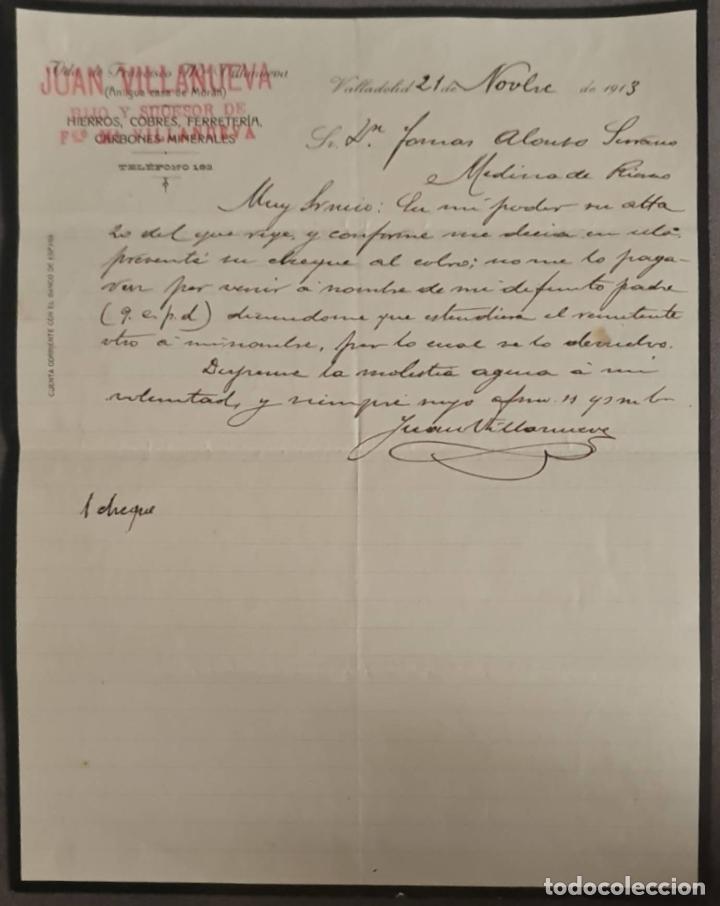 Vda. de Francisco Villanueva
JUAN VILLANUEVA
(Antigua casa de Morán)
HIJO Y SUCESOR DE
HIERROS, COBRES, FERRETERÍA,
Fco VILLANUEVA
CARBONES MINERALES
TELÉFONO 162
CUENTA CORRIENTE CON EL BANCO DE ESPAÑA
Valladolid 21 de Novbre de 1913
Sr. Dn. Tomas Alonso Serrano
Medina de Rioseco
Muy Sr mio: En mi poder su atta
20 del que rige, y conforme me decia en ella
presenté su cheque al cobro; no me lo paga-
ron por venir á nombre de mi difunto padre
(q. e. p. d) diciendome que estendiera el remitente
otro á mi nombre, por lo cual se lo devuelvo.
Dispense la molestia agena á mi
voluntad, y siempre suyo afmo. ss
Juan Villanueva
1 cheque
todocoleccion